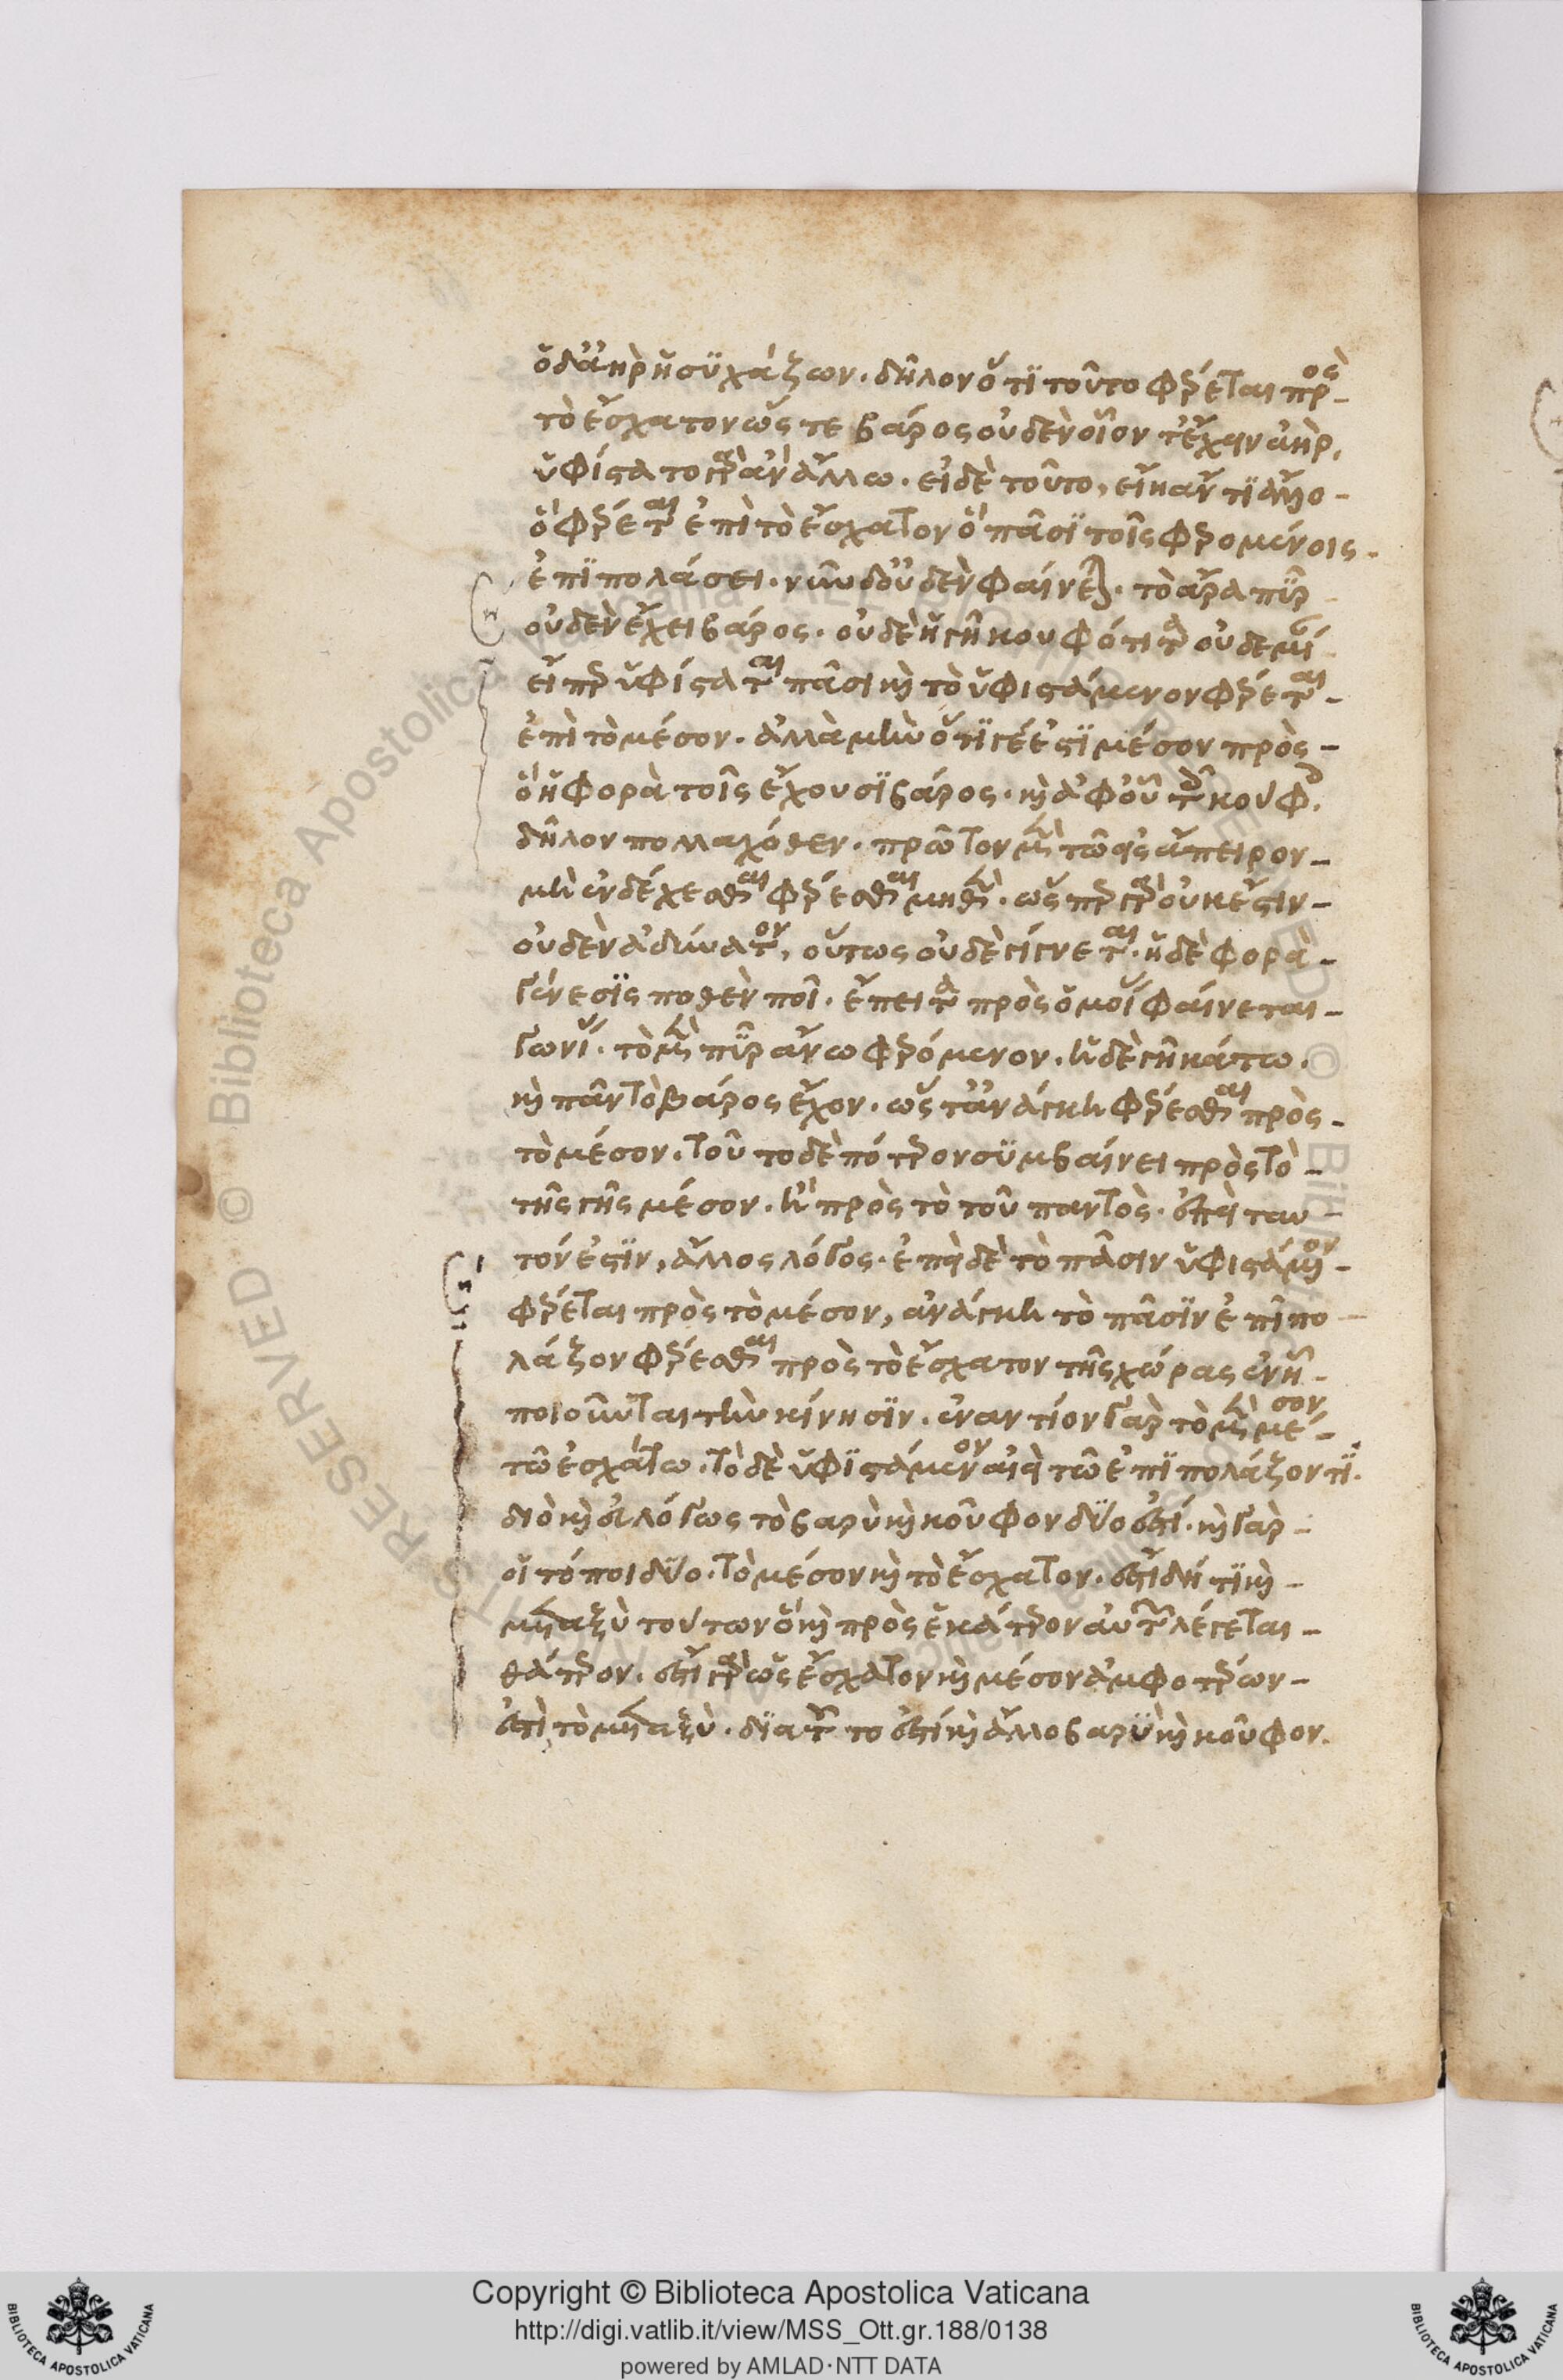 ὁδ' ἀὴρ ἡσυχάζων. δῆλον ὅτι τοῦτο φέρεται πρὸς
τὸ ἔσχατον ὥστε βάρος οὐδὲν οἷόν τ' ἔχειν ἀὴρ.
ὑφίστατο γὰρ ἂν ἄλλω. εἰ δὲ τοῦτο, εἴη ἄν τι ἄλλο
ὃ φέρεται ἐπὶ τὸ ἔσχατον ὃ πᾶσι τοῖς φερομένοις.
ἐπιπολάσει. νῦν δ' οὐδὲν φαίνεται. τὸ ἄρα πῦρ
οὐδὲν ἔχει βάρος. οὐδὲ ἡ γῆ κουφότητα οὐδεμίαν
εἴπερ ὑφίσταται πᾶσι καὶ τὸ ὑφιστάμενον φέρεται
ἐπὶ τὸ μέσον. ἀλλὰ μὴν ὅτι γέ ἐστι μέσον πρὸς
ὃ ἡ φορὰ τοῖς ἔχουσι βάρος. καὶ ἀφ' οὗ τοῖς κούφοις.
δῆλον πολλαχόθεν. πρῶτον μὲν τῷ εἰς ἄπειρον
μὴ ἐνδέχεσθαι φέρεσθαι μηθέν. ὥσπερ γὰρ οὐκ ἔστιν
οὐδὲν ἀδύνατον, οὕτως οὐδὲ γίγνεται. ἡ δὲ φορὰ
γένεσις ποθὲν ποῖ. ἔπειτα πρὸς ὁμοίας φαίνεται
γωνίας. τὸ μὲν πῦρ ἄνω φερόμενον. ἡ δὲ γῆ κάτω.
καὶ πᾶν τὸ βάρος ἔχον. ὥστ' ἀνάγκη φέρεσθαι πρὸς
τὸ μέσον. τοῦτο δὲ πότερον συμβαίνει πρὸς τὸ
τῆς γῆς μέσον. ἢ πρὸς τὸ τοῦ παντὸς. ἐπεὶ ταυ
τόν ἐστιν, ἄλλος λόγος. ἐπεὶ δὲ τὸ πᾶσιν ὑφιστάμενον
φέρεται πρὸς τὸ μέσον, ἀνάγκη τὸ πᾶσιν ἐπιπο
λάζον φέρεσθαι πρὸς τὸ ἔσχατον τῆς χώρας ἐν ᾗ
ποιοῦνται τὴν κίνησιν. ἐναντίον γὰρ τὸ μὲν μέσον
τῷ ἐσχάτω. τὸ δὲ ὑφιστάμενον αἰεὶ τῷ ἐπιπολάζοντι.
διὸ καὶ εὐλόγως τὸ βαρὺ καὶ κοῦφον δύο ἐστί. καὶ γὰρ
οἱ τόποι δύο. τὸ μέσον καὶ τὸ ἔσχατον. ἔστι δή τι καὶ
μεταξὺ τούτων ὃ καὶ πρὸς ἑκάτερον αὐτῶν λέγεται
θάτερον. ἔστι γὰρ ὡς ἔσχατον καὶ μέσον ἀμφοτέρων
ἐστὶ τὸ μεταξὺ. διὰ τοῦτο ἐστί καὶ ἄλλο βαρὺ καὶ κοῦφον.
Copyright © Biblioteca Apostolica Vaticana
http://digi.vatlib.it/view/MSS_Ott.gr.188/0138
powered by AMLAD·NTT DATA